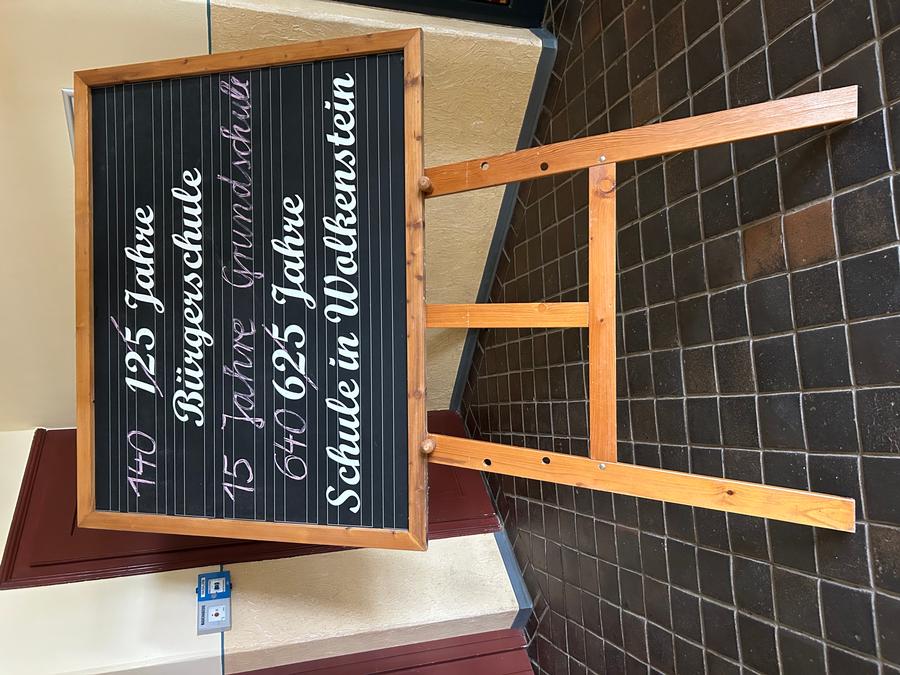 140 125 Jahre
Bürgerschule
15 Jahre Grundschule
640 625 Jahre
Schule in Wolkenstein